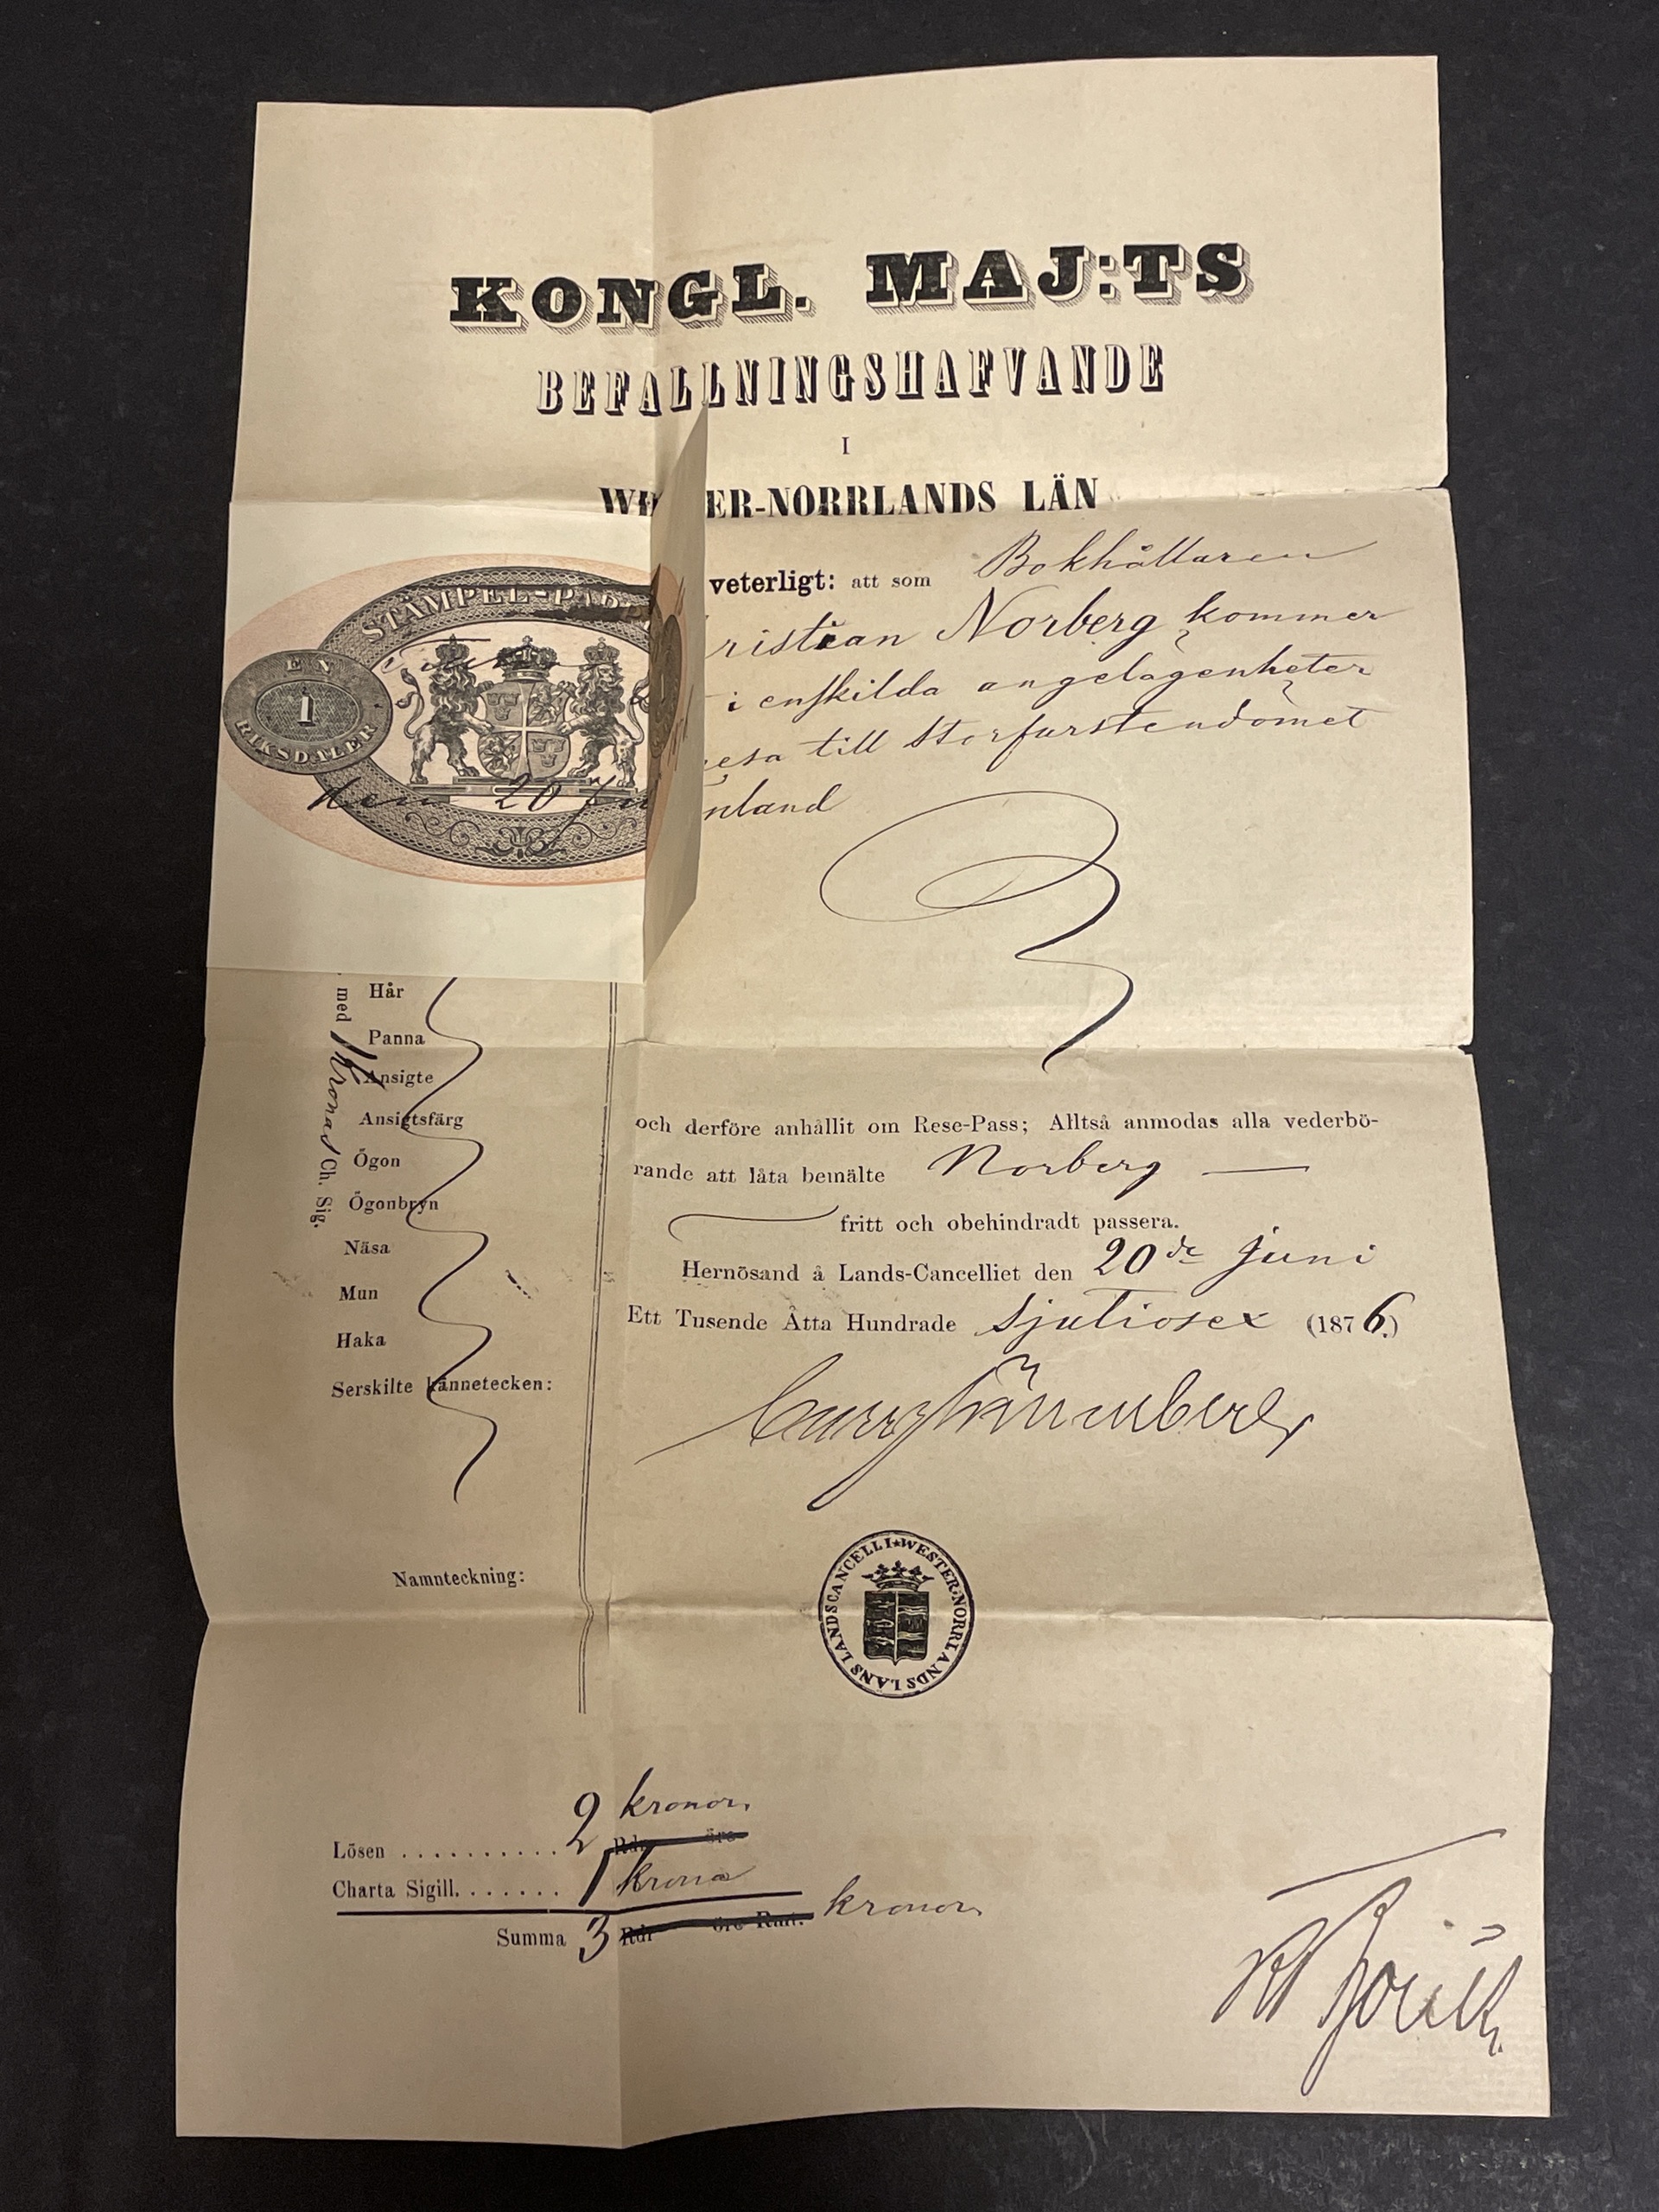 KONGL. MAJ:TS
BEFALLNINGSHAFVANDE
I
ER-NORRLANDS LÄN
veterligt: att som Bokhållaren
ristian Norberg kommer
i enskilda angelägenheter
esa till Storfurstendömet
nland
STÄMPEL-
EN
1
RIKSDALER
den 20 Ju
med 1 Kronas Ch. Sig.
Hår
Panna
Ansigte
Ansigtsfärg
Ögon
Ögonbryn
Näsa
Mun
Haka
Serskilte kännetecken:
Namnteckning:
och derföre anhållit om Rese-Pass; Alltså anmodas alla vederbö-
rande att låta bemälte Norberg
fritt och obehindradt passera.
Hernösand å Lands-Cancelliet den 20de Juni
Ett Tusende Åtta Hundrade Sjutiosex (1876.)
LANDSCANCELLI WESTER-NORRLANDS LÄNS
Lösen .......... 2 kronor
Rdr öre
Charta Sigill. ...... 1 krona
Summa 3 Rdr öre Rmt. kronor